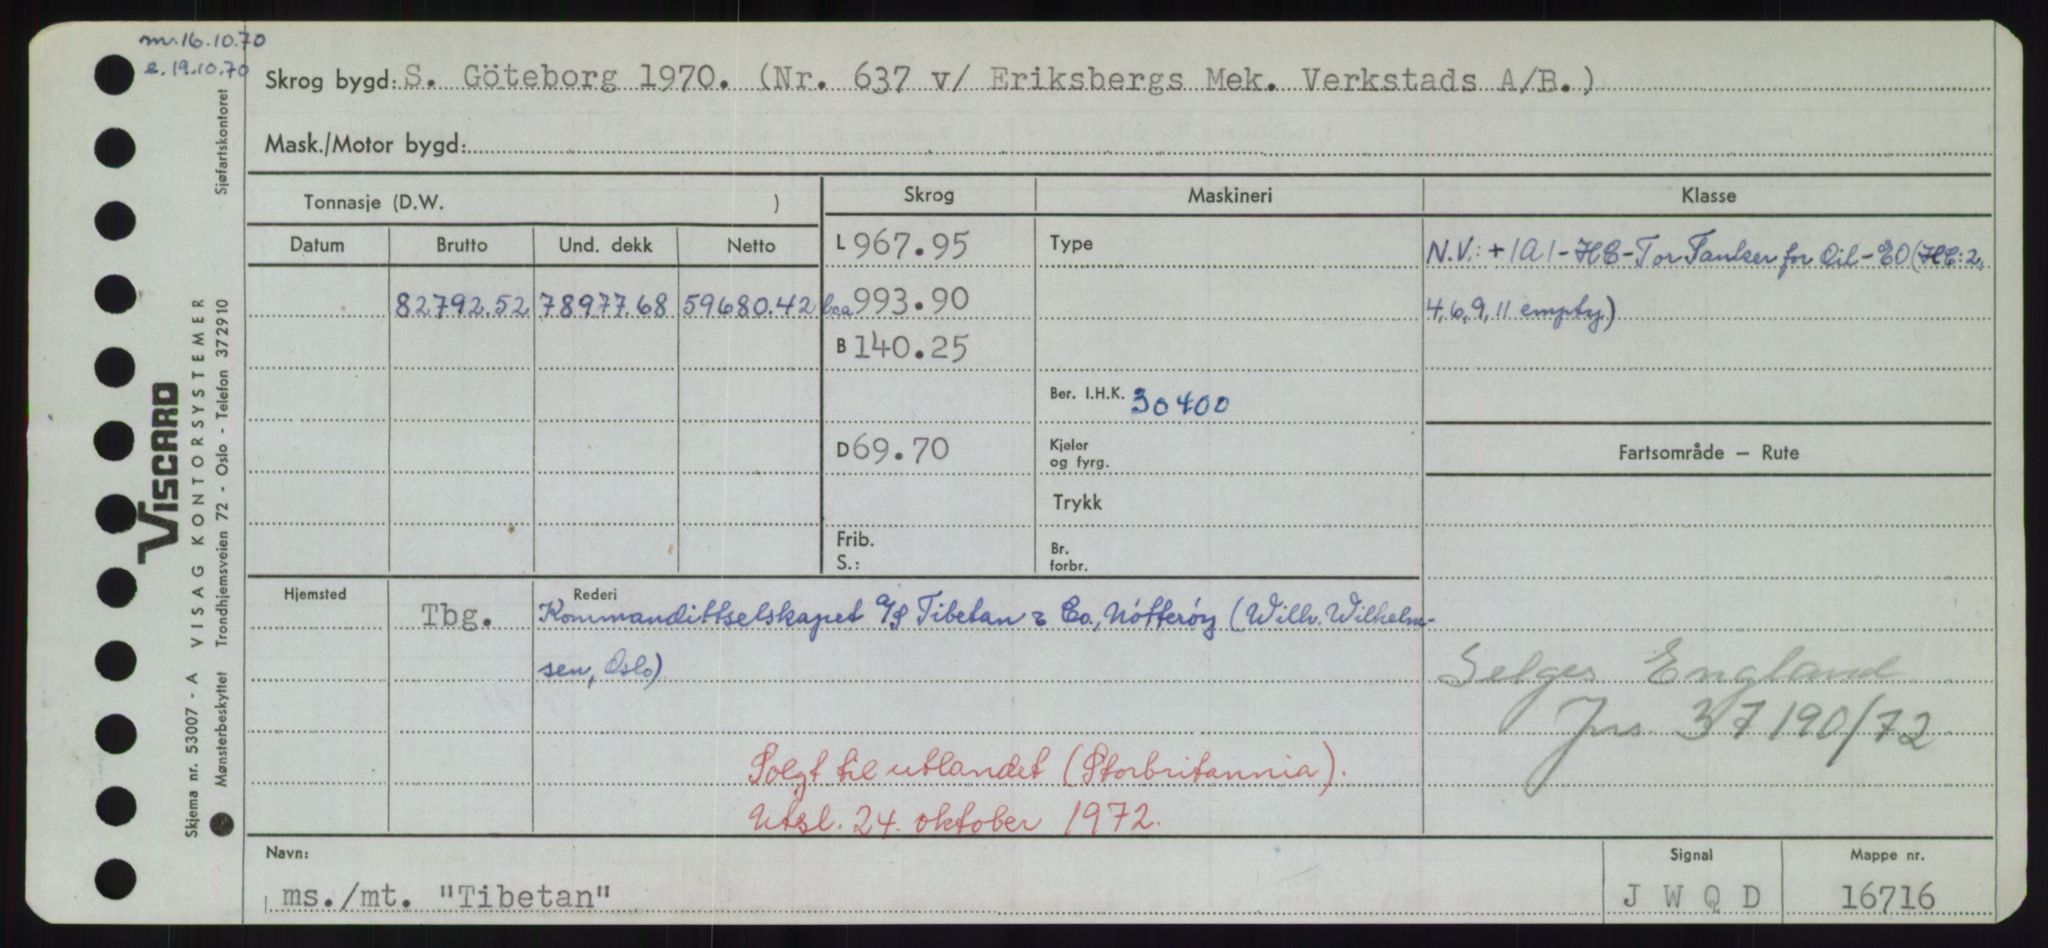 m. 16.10.70
e. 19.10.70
Skrog bygd: S. Göteborg 1970. (Nr. 637 v/ Eriksbergs Mek. Verkstads A/B.)
Mask./Motor bygd:
Tonnasje (D.W. )
Skrog
Maskineri
Klasse
Datum Brutto Und. dekk Netto
L 967.95
Type
N.V.: + 1A1 - HC - Tor Tanker for Oil - EO (HC: 2,
82792.52 78977.68 59680.42
loa 993.90
4, 6, 9, 11 empty)
B 140.25
Ber. I.H.K. 30400
D 69.70
Kjeler
og fyrg.
Fartsområde – Rute
Trykk
Frib.
S.:
Br.
forbr.
Hjemsted
Rederi
Tbg.
Kommandittselskapet A/S Tibetan & Co., Nøtterøy (Wilh. Wilhelm-
sen, Oslo)
Selges England
Jns 37190/72
Solgt til utlandet (Storbritannia).
Utsl. 24. oktober 1972.
Navn:
ms./mt. "Tibetan"
Signal
J W Q D
Mappe nr.
16716
VISCARD
Skjema nr. 53007 - A VISAG KONTORSYSTEMER
Mønsterbeskyttet Trondhjemsveien 72 - Oslo - Telefon 372910 Sjøfartskontoret